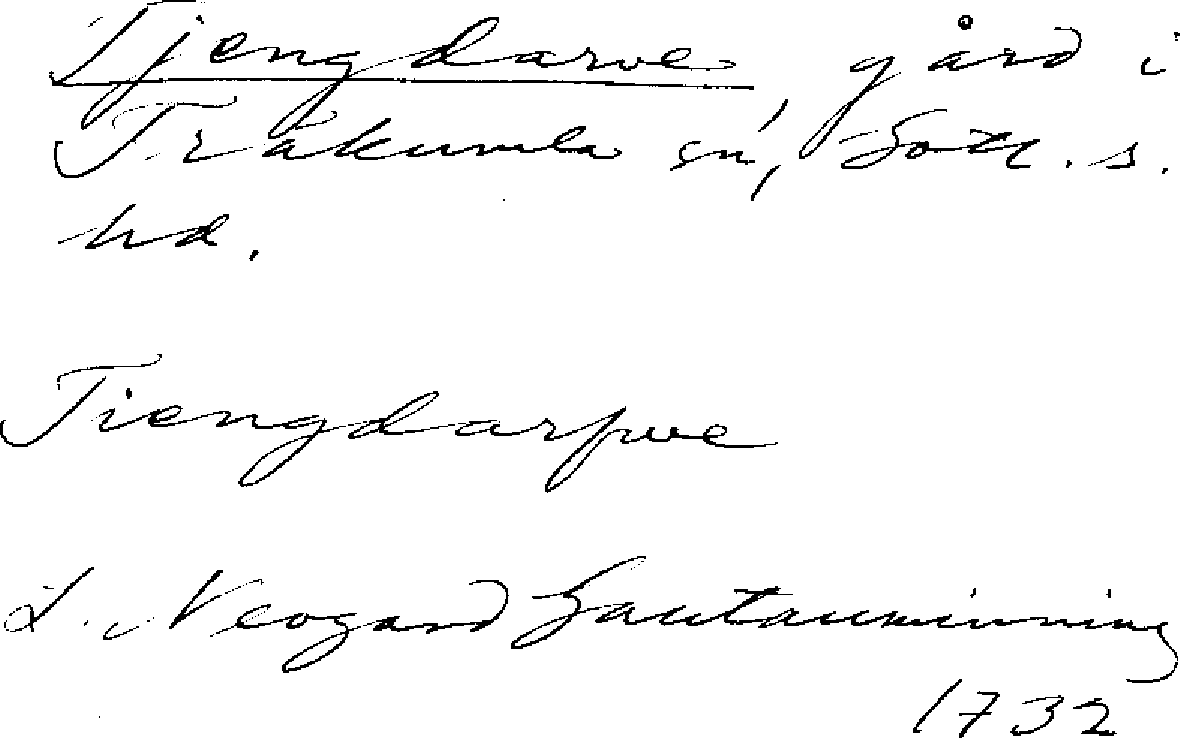 Tjengdarve, gård i
Träkumla sn, Gotl. s.
hd.
Tiengdarfwe
L. Neogard Gautauminning
1732